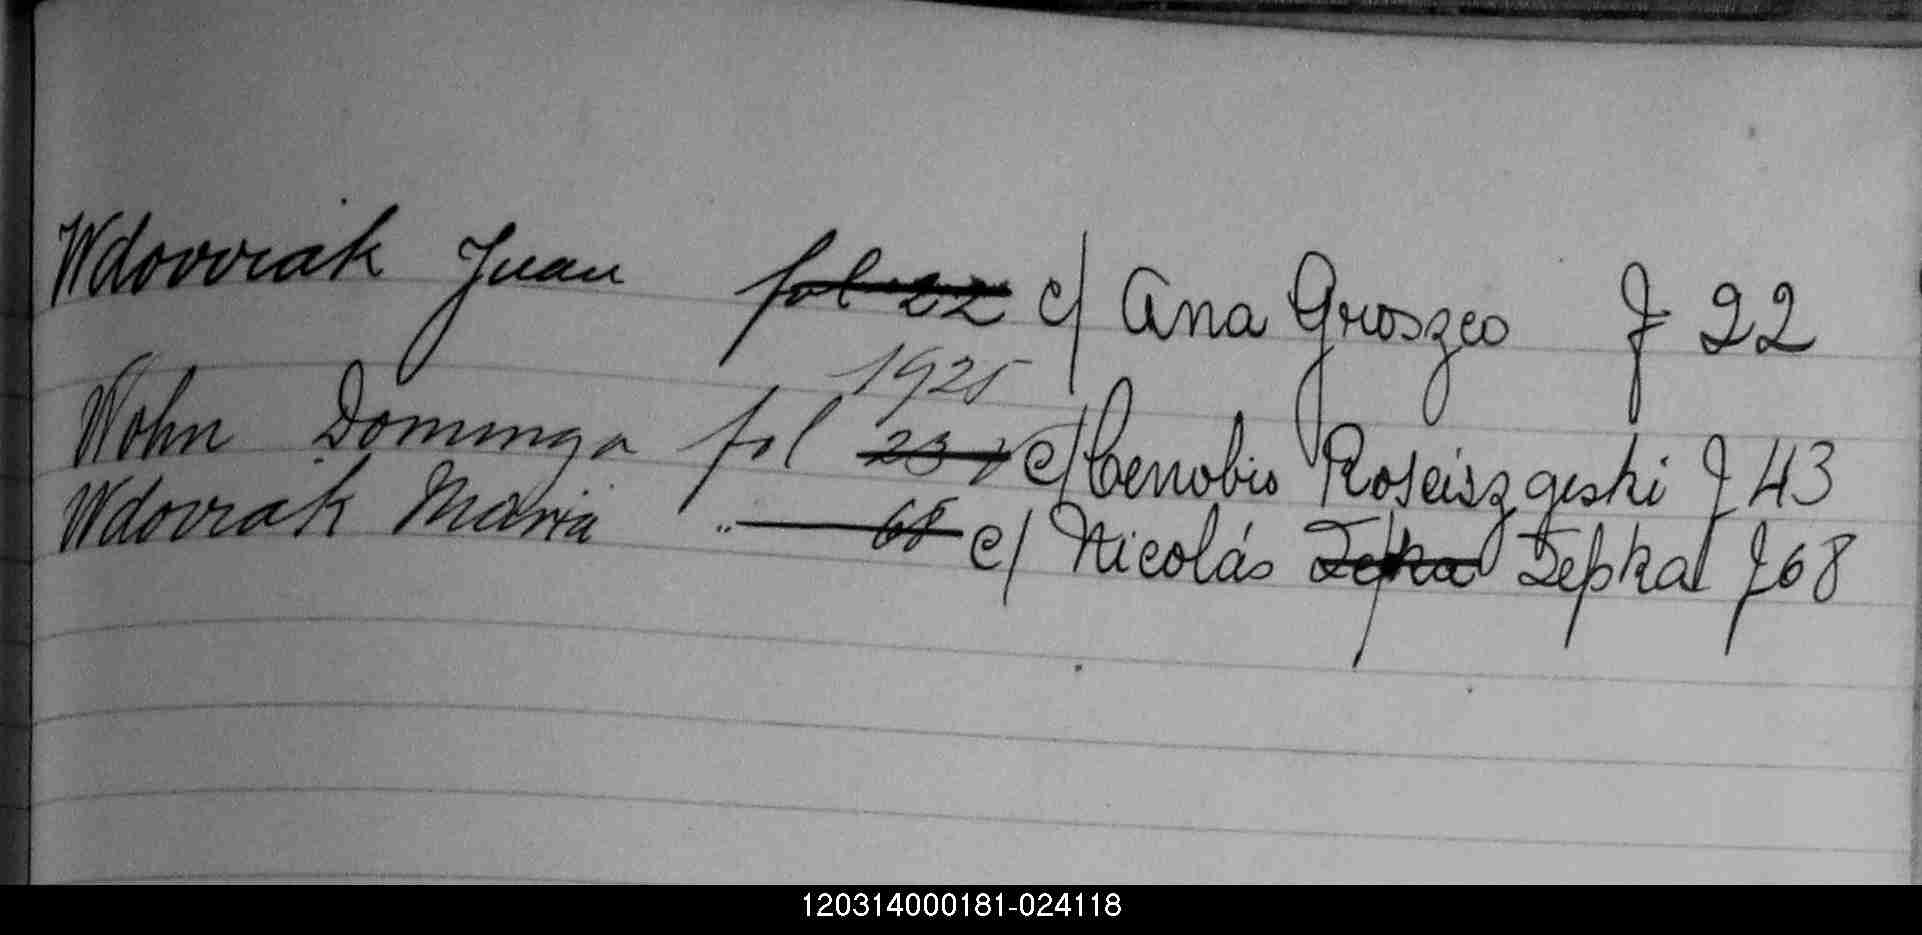 Wdowiak Juan fol 22 c/ Ana Groszco f 22
1925
Wohn Dominga fol 23 c/ Cenobio f 43
Wdowiak Maria " 68 c/ Nicolás Zepka Zepka f 68
120314000181-024118